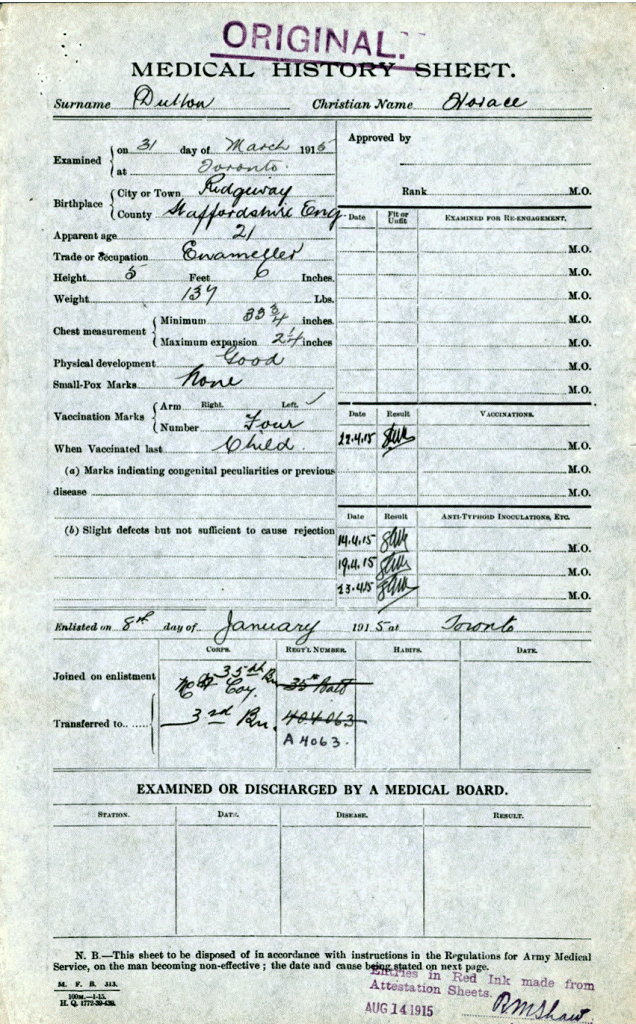 ORIGINAL.
MEDICAL HISTORY SHEET.
Surname Dutton Christian Name Horace
Examined { on 31 day of March 1915
at Toronto.
Birthplace { City or Town Ridgeway
County Staffordshire Eng.
Apparent age 21
Trade or occupation Enameller
Height 5 Feet 6 Inches.
Weight 137 Lbs.
Chest measurement { Minimum 33 3/4 inches
Maximum expansion 2 1/4 inches
Physical development Good
Small-Pox Marks None
Vaccination Marks { Arm Right. Left. ✓
Number Four
When Vaccinated last Child.
(a) Marks indicating congenital peculiarities or previous
disease
(b) Slight defects but not sufficient to cause rejection
Approved by
Rank M.O.
Date Fit or Unfit EXAMINED FOR RE-ENGAGEMENT.
M.O.
M.O.
M.O.
M.O.
M.O.
M.O.
M.O.
Date Result VACCINATIONS.
22.4.15 M.O.
M.O.
M.O.
Date Result ANTI-TYPHOID INOCULATIONS, ETC.
14.4.15 M.O.
19.4.15 M.O.
23.4.15 M.O.
Enlisted on 8th day of January 1915 at Toronto
CORPS. REGT'L NUMBER. HABITS. DATE.
Joined on enlistment 35th Bn
Coy. 35th Batt
Transferred to 3rd Bn. 404063
A 4063.
EXAMINED OR DISCHARGED BY A MEDICAL BOARD.
STATION. DATE. DISEASE. RESULT.
N. B.—This sheet to be disposed of in accordance with instructions in the Regulations for Army Medical
Service, on the man becoming non-effective; the date and cause being stated on next page.
Entries in Red Ink made from
Attestation Sheets.
M. F. B. 313.
100m.—1-15.
H. Q. 1772-39-439.
AUG 14 1915 R M Shaw